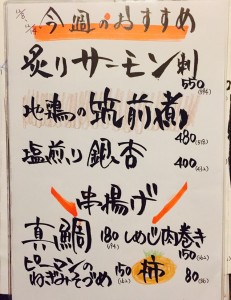 今週のおすすめ
炙りサーモン刺
550
地鶏の筑前煮
480
塩煎り銀杏
400
串揚げ
真鯛 180 しめじ肉巻き 150
ピーマンのねぎみそづめ 150 柿 80